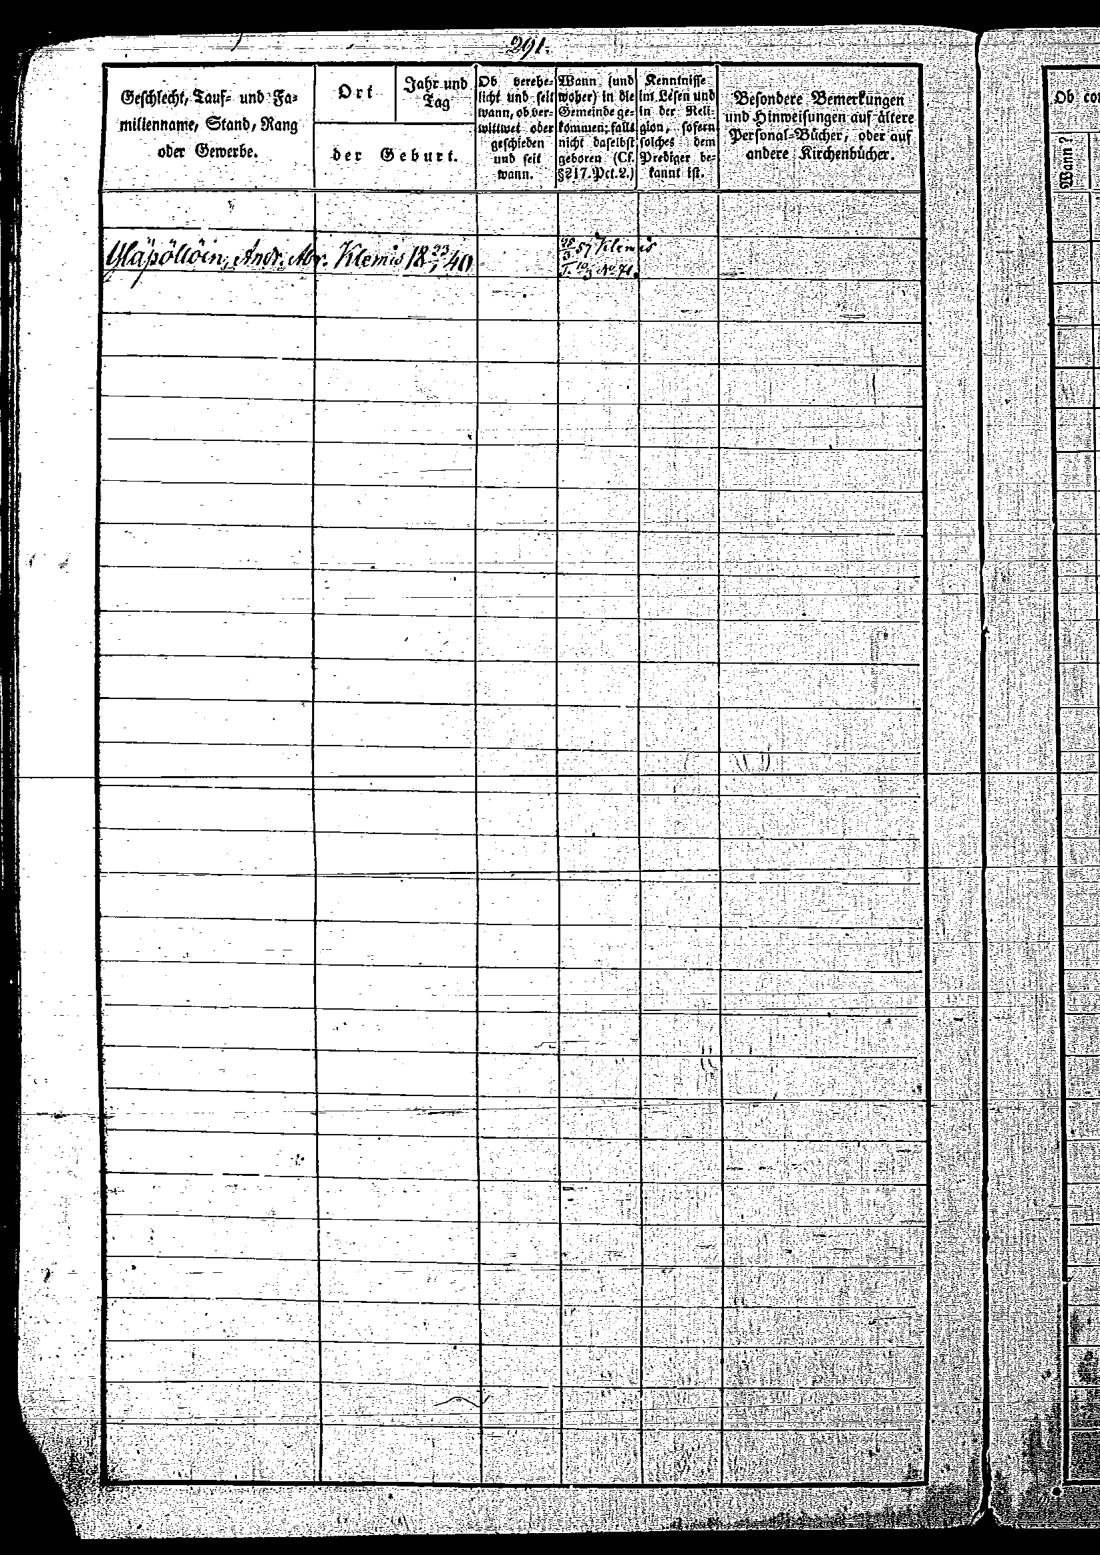 291.
Geschlecht, Tauf- und Fa-
milienname, Stand, Rang
oder Gewerbe.
Ort
Jahr und
Tag
der Geburt.
Ob verehe-
licht und seit
wann, ob ver-
wittwet oder
geschieden
und seit
wann.
Wann (und
woher) in die
Gemeinde ge-
kommen; falls
nicht daselbst
geboren (Cf.
§217. Pct. 2.)
Kenntnisse
im Lesen und
in der Reli-
gion, sofern
solches dem
Prediger be-
kannt ist.
Besondere Bemerkungen
und Hinweisungen auf ältere
Personal-Bücher, oder auf
andere Kirchenbücher.
Andr. Abr. Klemis 18 23/1 40
57 Klemis
No 71.
Ob con
Wann?